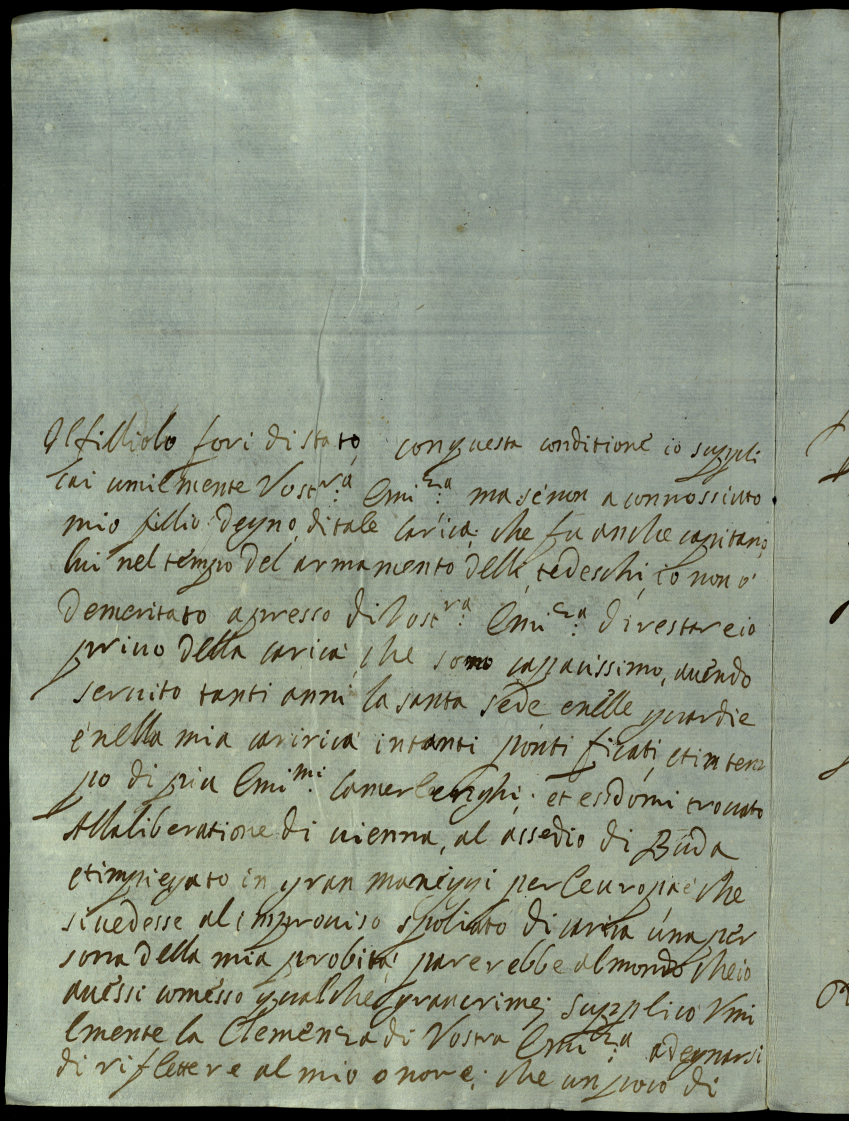 Il filliolo fori di stato, con questa conditione io suppli
cai umilmente Vostra: Emiza: ma se non a connossiuto
mio fillio degno di tale carica, che fu anche capitano
lui nel tempo del armamento delli tedeschi, io non ò
demeritato apresso di Vostra: Emiza: di restare io
priuo della carica, che somo capacissimo, auendo
seruito tanti anni la santa sede, e nelle guardie
e nella mia caririca in tanti pontificati, et in tem
po di piu Emimi: Camerlenghi; et essdomi trouato
Alla liberatione di uienna, al assedio di Buda
et impiegato in gran maneggi per l'europa e che
si uedesse al improuiso spoliato di carica una per
sona della mia probità, parerebbe al mondo che io
auessi comesso qualche gran crime; supplico Vmi
lmente la Clemenza di Vostra Emiza: a degnarsi
di riflettere al mio onore; che un poco di